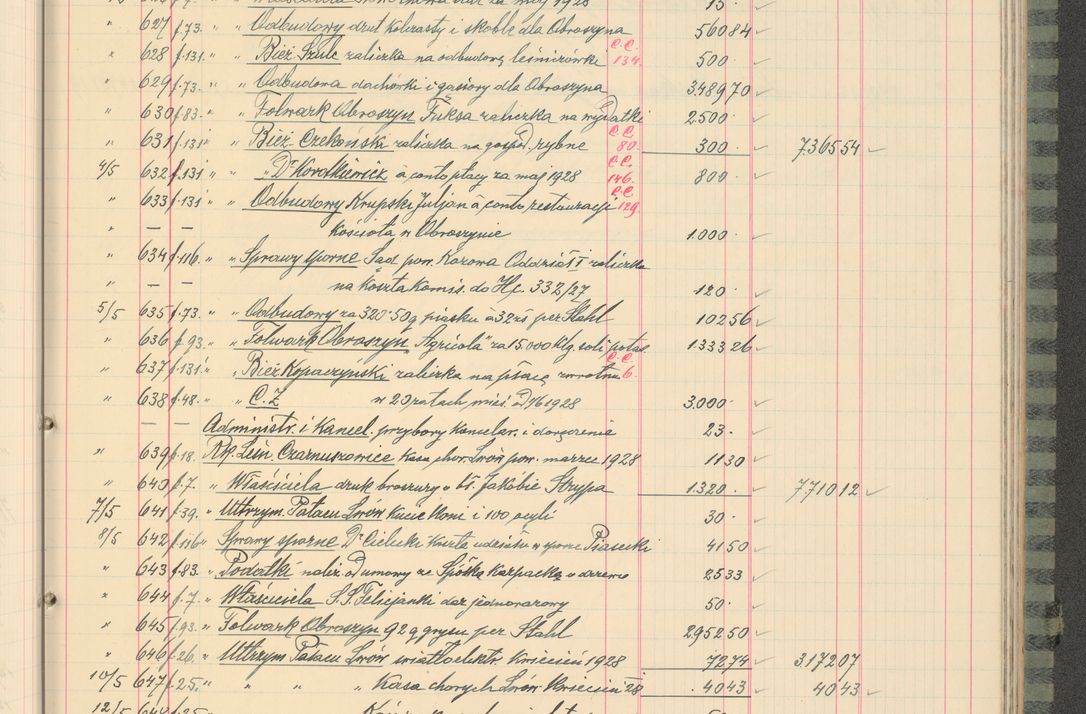 " 627 f.73. " " Odbudowy drut kolczasty i skoble dla Obroszyna 56084
" 628 f.131. " " Bież. Szulc zaliczka na odbudowę leśniczówki C.C. 134. 500.
" 629 f.73. " " Odbudowa dachówki i gąsiory dla Obroszyna 348970
" 630 f.83. " " Folwark Obroszyn Fuksa zaliczka na wydatki 2500.
" 631 f.131 " " Bież. Czekoński zaliczka na gospod. rybne C.C. 80. 300. 736554
4/5 632 f.131 " " Dr Korotkiewicz a conto płacy za maj 1928 C.C. 146. 800.
" 633 f.131 " " Odbudowy Krupski Juljan a conto restauracji C.C. 129.
" — — Kościoła w Obroszynie 1.000.
" 634 f.116. " " Sprawy sporne Sąd pow. Kozowa Oddział II zaliczka
" — — na koszta komis. do Hc. 332/27 120.
5/5 635 f.73. " " Odbudowy za 320.50 q piasku a 32 zł per Stahl 10256
" 636 f.93. " " Folwark Obroszyn "Agricola" za 15.000 klg. soli potas. 133326
" 637 f.131. " " Bież Kopaczyński zaliczka na płacę zwrotna C.C. 6.
" 638 f.48. " " C.Z. w 20 ratach mieś. od 1/6 1928 3.000.
— — Administr. i Kancel. przybory kancelar. i doręczenie 23.
" 639 f.18. Rk. Leśn. Czarnuszowice Kasa chor. Lwów pow. marzec 1928 1130
" 640 f.7. " Właściciela druk broszury o bł. Jakobie Strepa 1.320. 771012
7/5 641 f.39. " Utrzym. Pałacu Lwów Kucie koni i 100 ocyli 30.
8/5 642 f.116 " Sprawy sporne Dr Cielecki koszta udziału w sporze Piasecki 4150
" 643 f.83. " Podatki należ. od umowy ze Spółką Karpacką o drzewo 2533
" 644 f.7. " Właściciela S.S. Felicjanki dar jednorazowy 50.
" 645 f.93. " Folwark Obroszyn 92 q grysu per Stahl 295250
" 646 f.26. " Utrzym Pałacu Lwów światło elektr. Kwiecień 1928 7274 317207
10/5 647 f.25. " " " " Kasa chorych Lwów Kwiecień 28 4043 4043
12/5